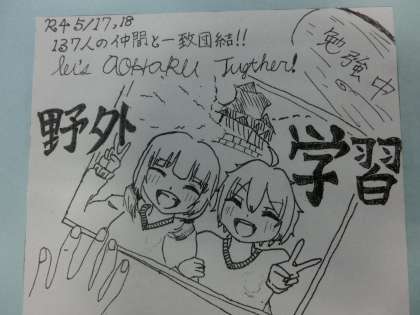 R4 5/17,18
137人の仲間と一致団結!!
let's AOHARU Jugther!
勉強中
野外
学習